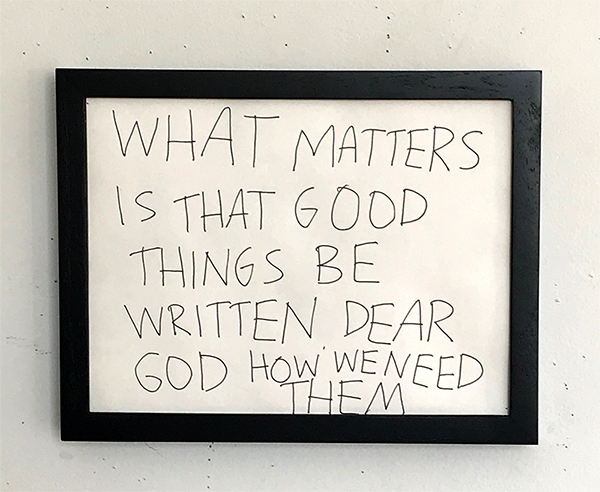 WHAT MATTERS
IS THAT GOOD
THINGS BE
WRITTEN DEAR
GOD HOW WE NEED
THEM